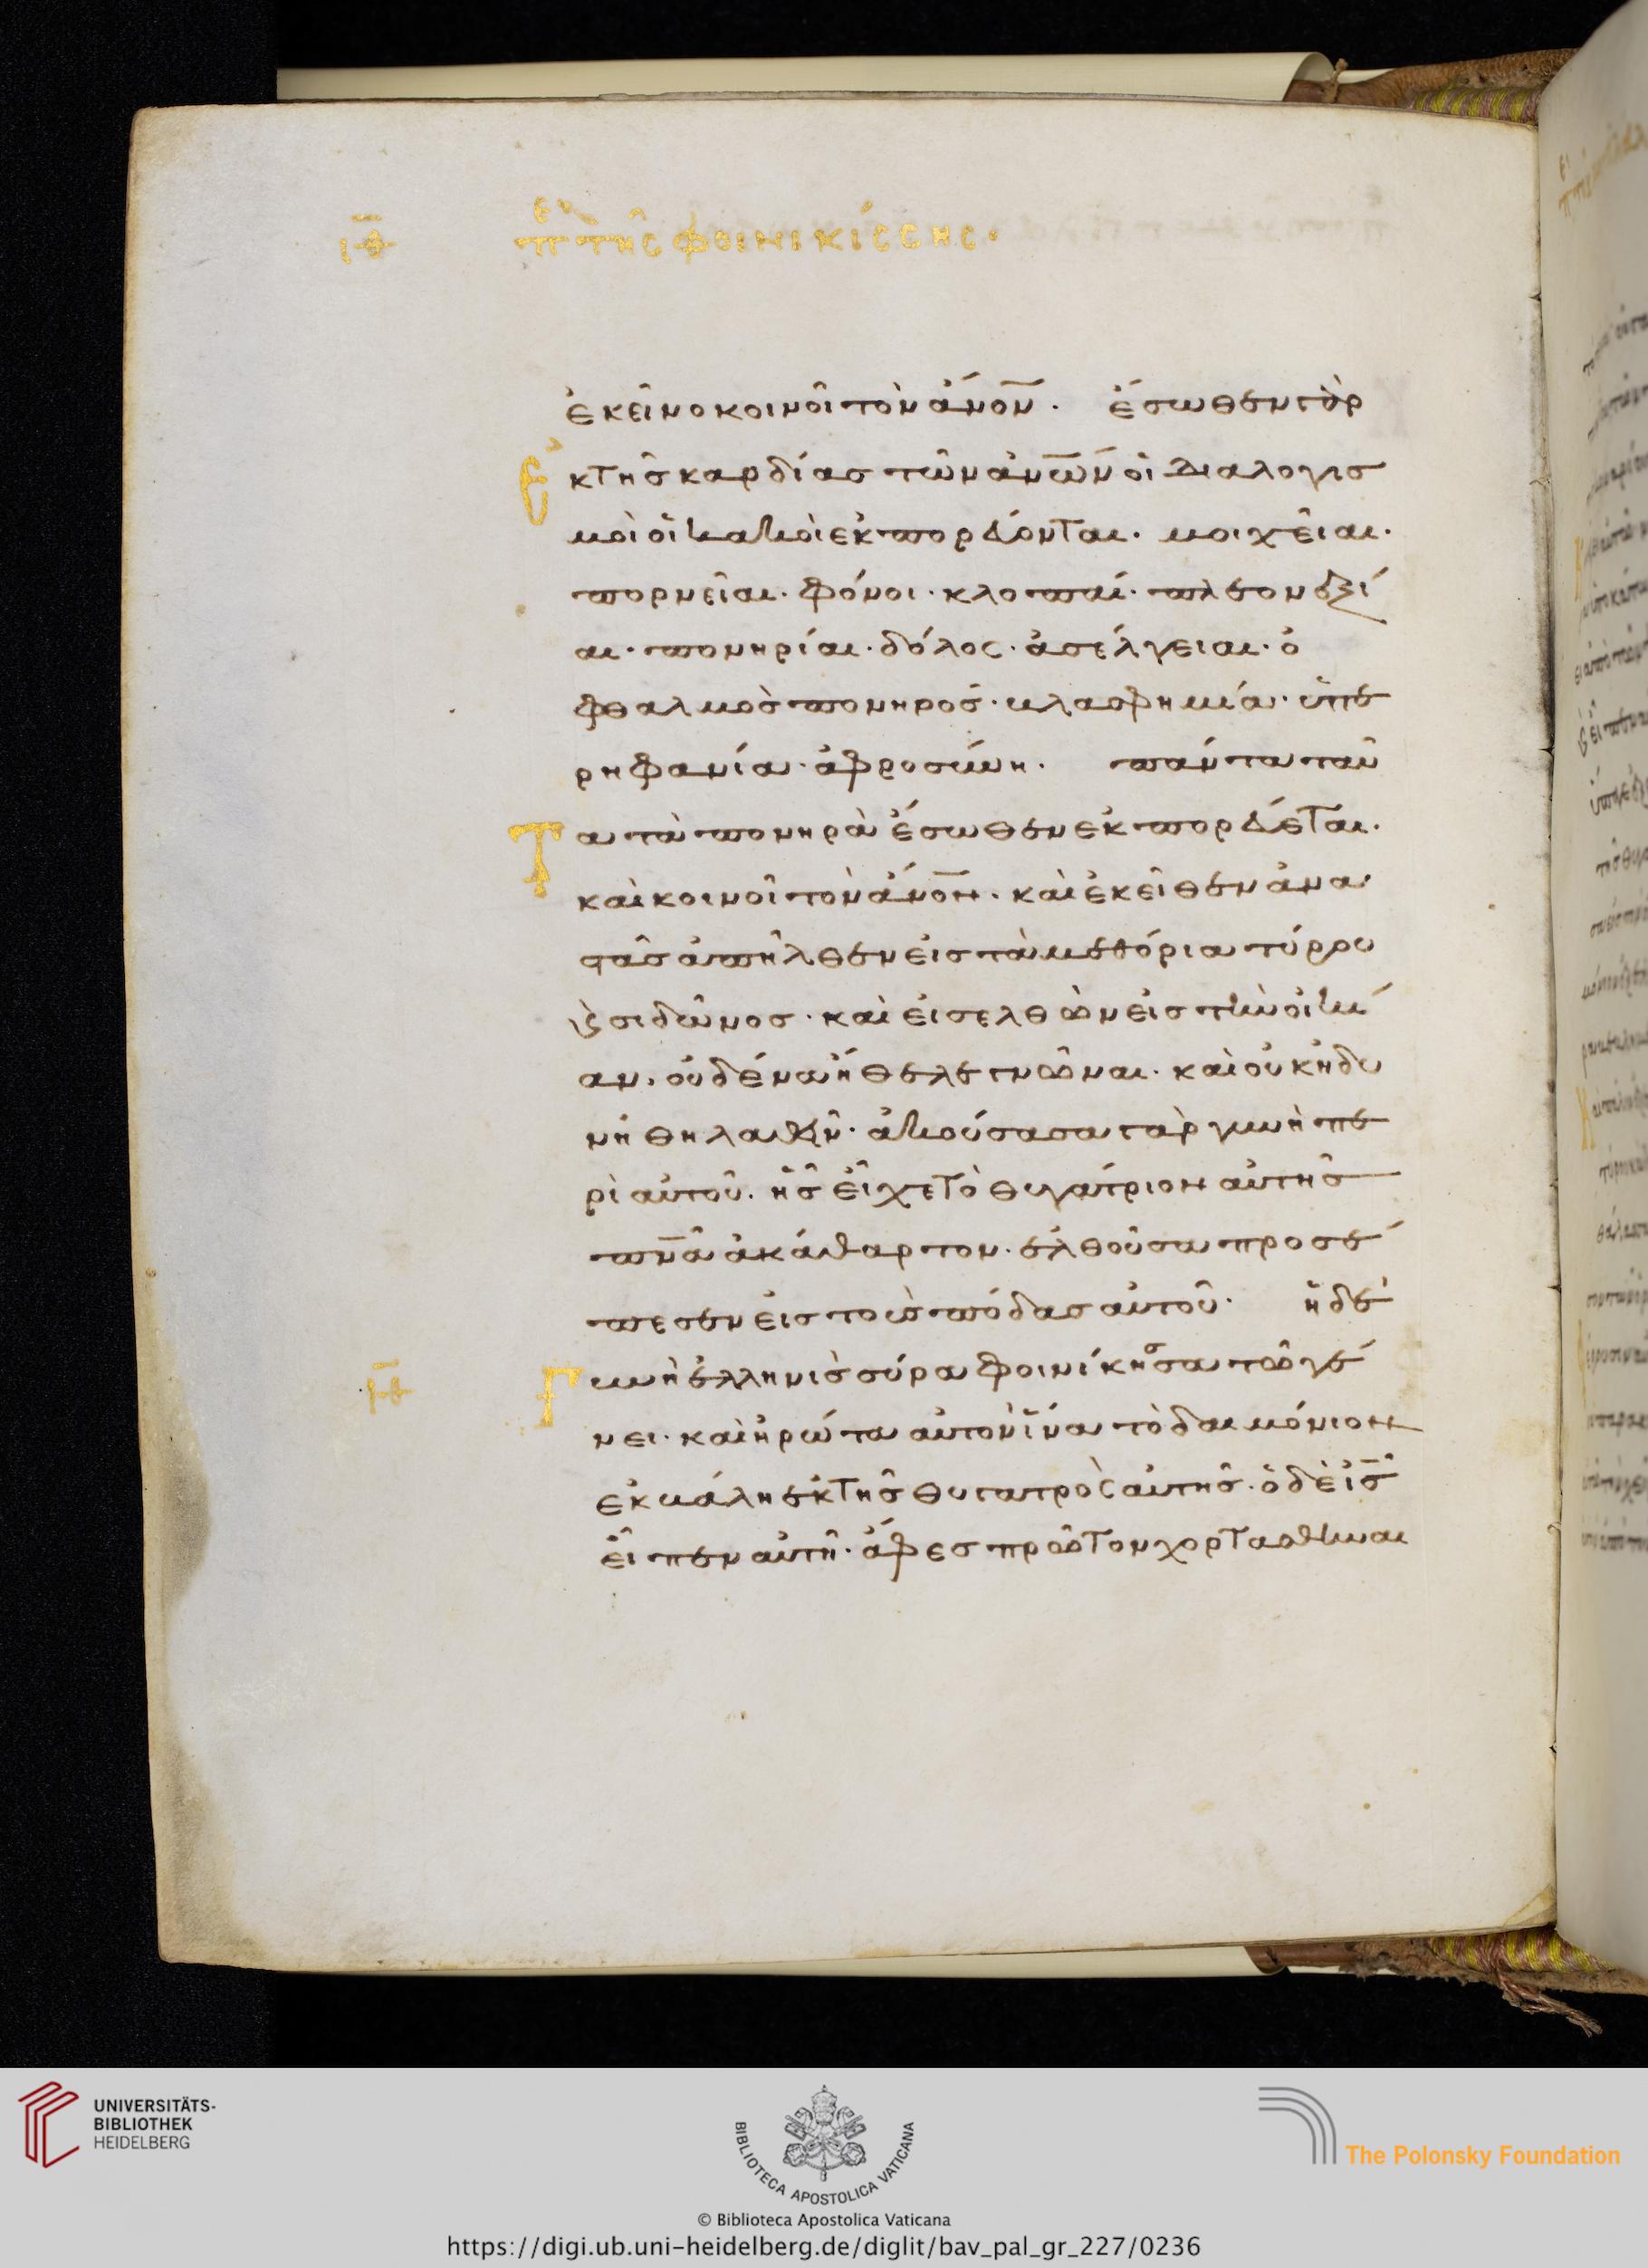 ιθ περὶ τῆς φοινικίσσης·
ἐκεῖνο κοινοῖ τὸν ἄνον· ἔσωθεν γὰρ
ἐκ τῆς καρδίας τῶν ἀνων οἱ διαλογισ
μοὶ οἱ κακοὶ ἐκπορεύονται· μοιχεῖαι·
πορνεῖαι· φόνοι· κλοπαί· πλεονεξί
αι· πονηρίαι· δόλος· ἀσέλγειαι· ὀ
φθαλμὸς πονηρος· βλασφημία· ὑπε
ρηφανία· ἀφροσύνη· πάντα ταῦ
Τα τὰ πονηρὰ ἔσωθεν ἐκπορεύεται·
καὶ κοινοῖ τὸν ἄνον· καὶ ἐκεῖθεν ἀνα
στὰς ἀπῆλθεν εἰς τὰ μεθόρια τύρου
ϗ σιδῶνος· καὶ εἰσελθὼν εἰς τὴν οἰκί
αν· οὐδένα ἤθελε γνῶναι· καὶ οὐκ ἠδυ
νήθη λαθεῖν· ἀκούσασα γὰρ γυνὴ πε
ρὶ αὐτοῦ· ἧς εἶχε τὸ θυγάτριον αὐτῆς
πνα ἀκάθαρτον· ἐλθοῦσα προσέ
πεσεν εἰς τοὺς πόδας αὐτοῦ· ἡ δὲ
Γυνὴ ἑλληνὶς σύρα φοινίκησσα τῶ γέ
νει· καὶ ἠρώτα αὐτὸν ἵνα τὸ δαιμόνιον
ἐκβάλη ἐκ τῆς θυγατρὸς αὐτῆς· ὁ δὲ ἰς
εἶπεν αὐτῆ· ἄφες πρῶτον χορτασθῆναι
UNIVERSITÄTS-
BIBLIOTHEK
HEIDELBERG
BIBLIOTECA APOSTOLICA VATICANA
The Polonsky Foundation
© Biblioteca Apostolica Vaticana
https://digi.ub.uni-heidelberg.de/diglit/bav_pal_gr_227/0236